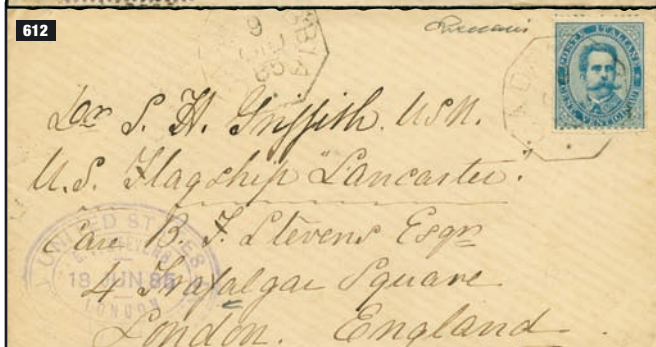 612
POSTE ITALIANE
CENT. VENTICINQUE
Dr S. H. Griffith. U.S.N.
U.S. Flagship "Lancaster."
Care B. F. Stevens Esqr
4 Trafalgar Square
London. England.
UNITED STATES
B. F. STEVENS
19 JUN 85
LONDON